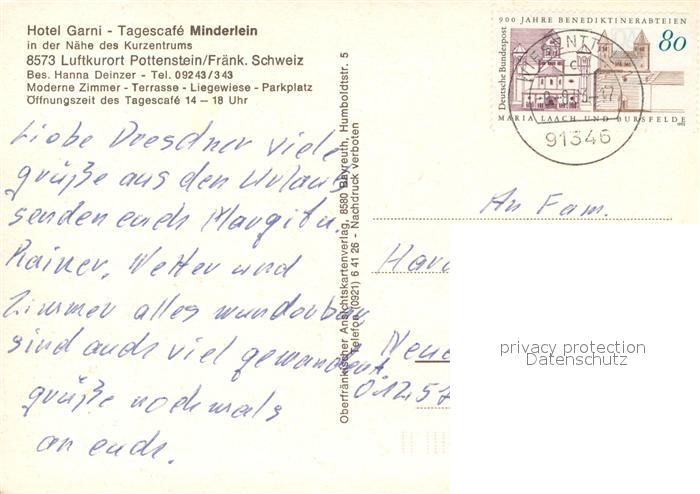 Hotel Garni - Tagescafé Minderlein
in der Nähe des Kurzentrums
8573 Luftkurort Pottenstein/Fränk. Schweiz
Bes. Hanna Deinzer - Tel. 09243/343
Moderne Zimmer - Terrasse - Liegewiese - Parkplatz
Öffnungszeit des Tagescafé 14 – 18 Uhr
Liebe Dresdner viele
grüße aus den Urlaub
senden euch Margit u.
Rainer. Wetter und
Zimmer alles wunderbar
sind auch viel gewandert.
grüße nochmals
an euch.
Oberfränkischer Ansichtskartenverlag, 8580 Bayreuth, Humboldtstr. 5
Telefon (0921) 6 41 26 - Nachdruck verboten
900 JAHRE BENEDIKTINERABTEIEN
80
Deutsche Bundespost
MARIA LAACH UND BURSFELDE
91346
An Fam.
Hara
Neud
0125
privacy protection
Datenschutz